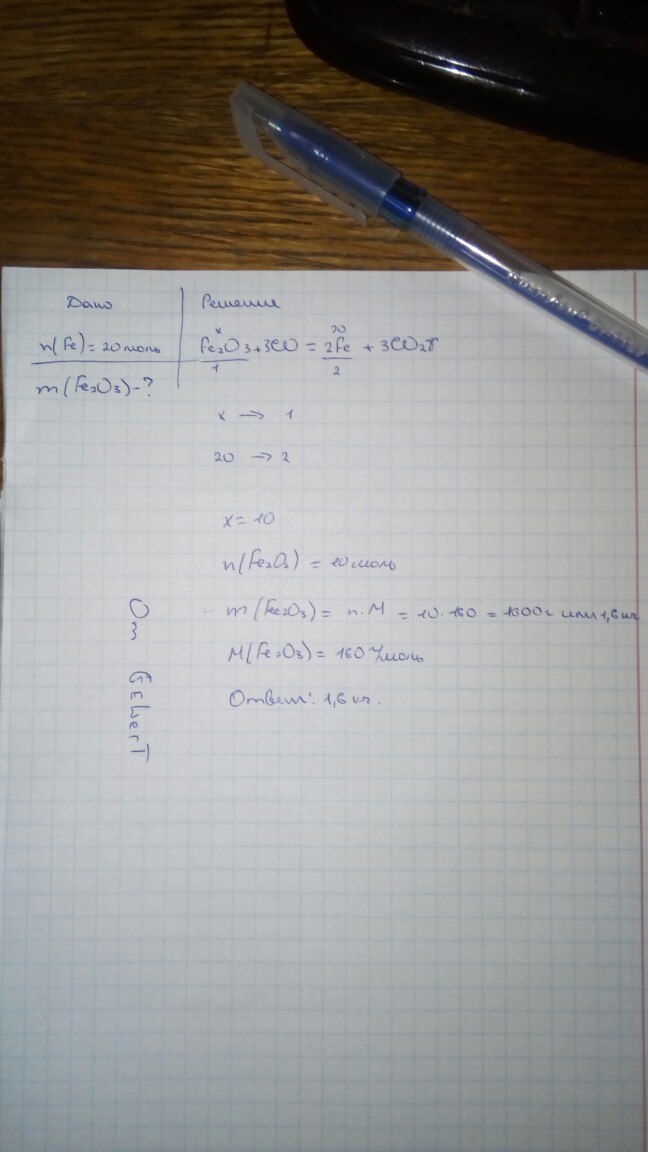 Дано Решение
x 20
n(Fe)=20 моль Fe2O3+3CO = 2Fe + 3CO2↑
1 2
m(Fe2O3)-?
x → 1
20 → 2
x=10
n(Fe2O3) = 10 моль
m(Fe2O3)= n.M = 10.160 = 1600г или 1,6 кг
M(Fe2O3)= 160 г/моль
Ответ: 1,6 кг.